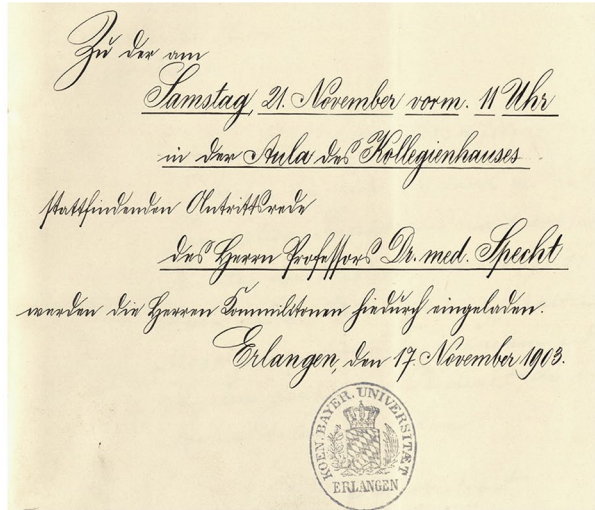 Zu der am
Samstag, 21. November vorm. 11 Uhr
in der Aula des Kollegienhauses
stattfindenden Antrittsrede
des Herrn Professors Dr. med. Specht
werden die Herren Kommilitonen hiedurch eingeladen.
Erlangen, den 17. November 1903.
KOEN. BAYER. UNIVERSITÆT
ERLANGEN